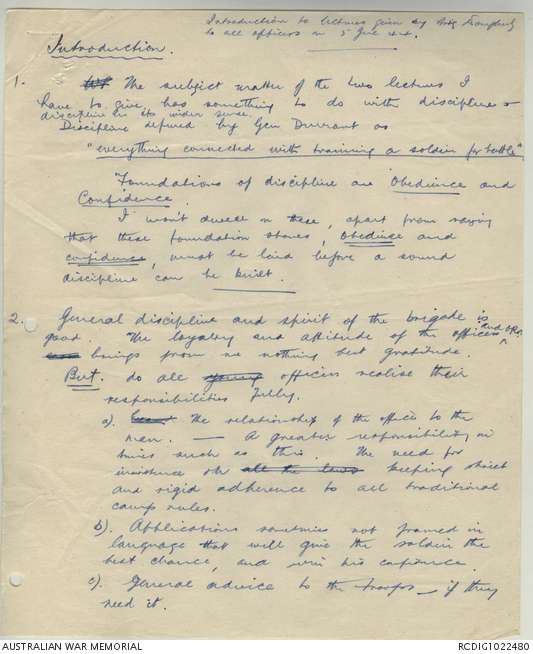 Introduction to lectures given by Brig Dougherty
to all officers on 5 June 44.
Introduction.
1. The subject matter of the two lectures I
have to give has something to do with discipline &
discipline in its wider sense.
Discipline defined by Gen Durrant as
"everything connected with training a soldier for battle"
Foundations of discipline are Obedience and
Confidence.
I won't dwell on these, apart from saying
that these foundation stones, obedience and
confidence, must be laid before a sound
discipline can be built.
2. General discipline and spirit of the brigade is
good. The loyalty and attitude of the officers and ORs
brings from me nothing but gratitude.
But. do all young officers realise their
responsibilities fully.
a). The relationship of the officer to the
men. — A greater responsibility in
times such as this. The need for
insistence on all the laws keeping strict
and rigid adherence to all traditional
camp rules.
b). Applications sometimes not framed in
language that will give the soldier the
best chance, and win his confidence.
c). General advice to the troops — if they
need it.
AUSTRALIAN WAR MEMORIAL
RCDIG1022480